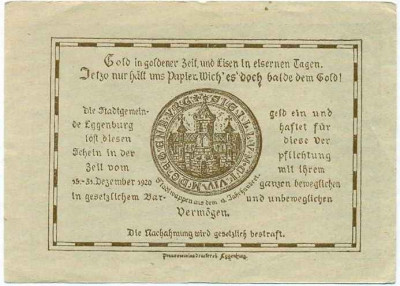 Gold in goldener Zeit, und Eisen in eisernen Tagen.
Jetzo nur hält uns Papier. Wich' es doch balde dem Gold!
Die Stadtgemein-
de Eggenburg
löst diesen
Schein in der
Zeit vom
15.-31. Dezember 1920
in gesetzlichem Bar-
geld ein und
haftet für
diese Ver
pflichtung
mit ihrem
ganzen beweglichen
und unbeweglichen
Vermögen.
Stadtwappen aus dem Jahrhundert.
Die Nachahmung wird gesetzlich bestraft.
Eggenburg.